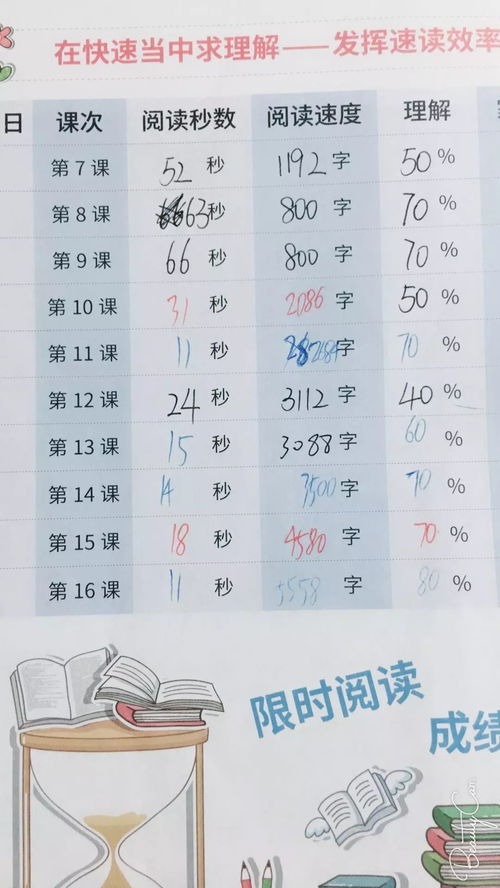 在快速当中求理解——发挥速读效率
日 课次 阅读秒数 阅读速度 理解
第7课 52秒 1192字 50%
第8课 63秒 800字 70%
第9课 66秒 800字 70%
第10课 31秒 2086字 50%
第11课 11秒 2684字 70%
第12课 24秒 3112字 40%
第13课 15秒 3088字 60%
第14课 14秒 3500字 70%
第15课 18秒 4580字 70%
第16课 11秒 5558字 80%
限时阅读
成绩
BeautyCam